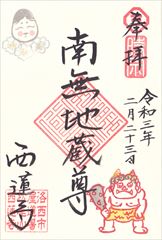 奉拝
令和三年
二月二十三日
南無地蔵尊
西蓮寺